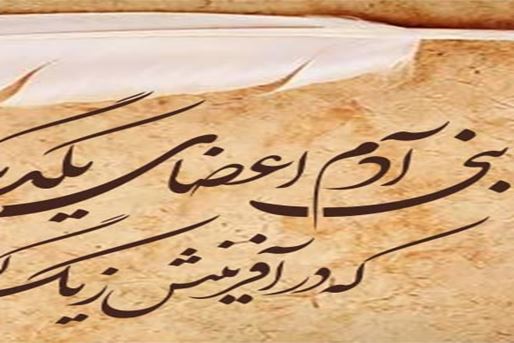 بنی آدم اعضای یکدی
که در آفرینش ز یک